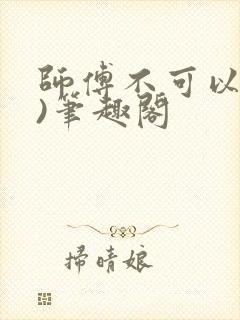 師傅不可以
)筆趣閣
掃晴娘